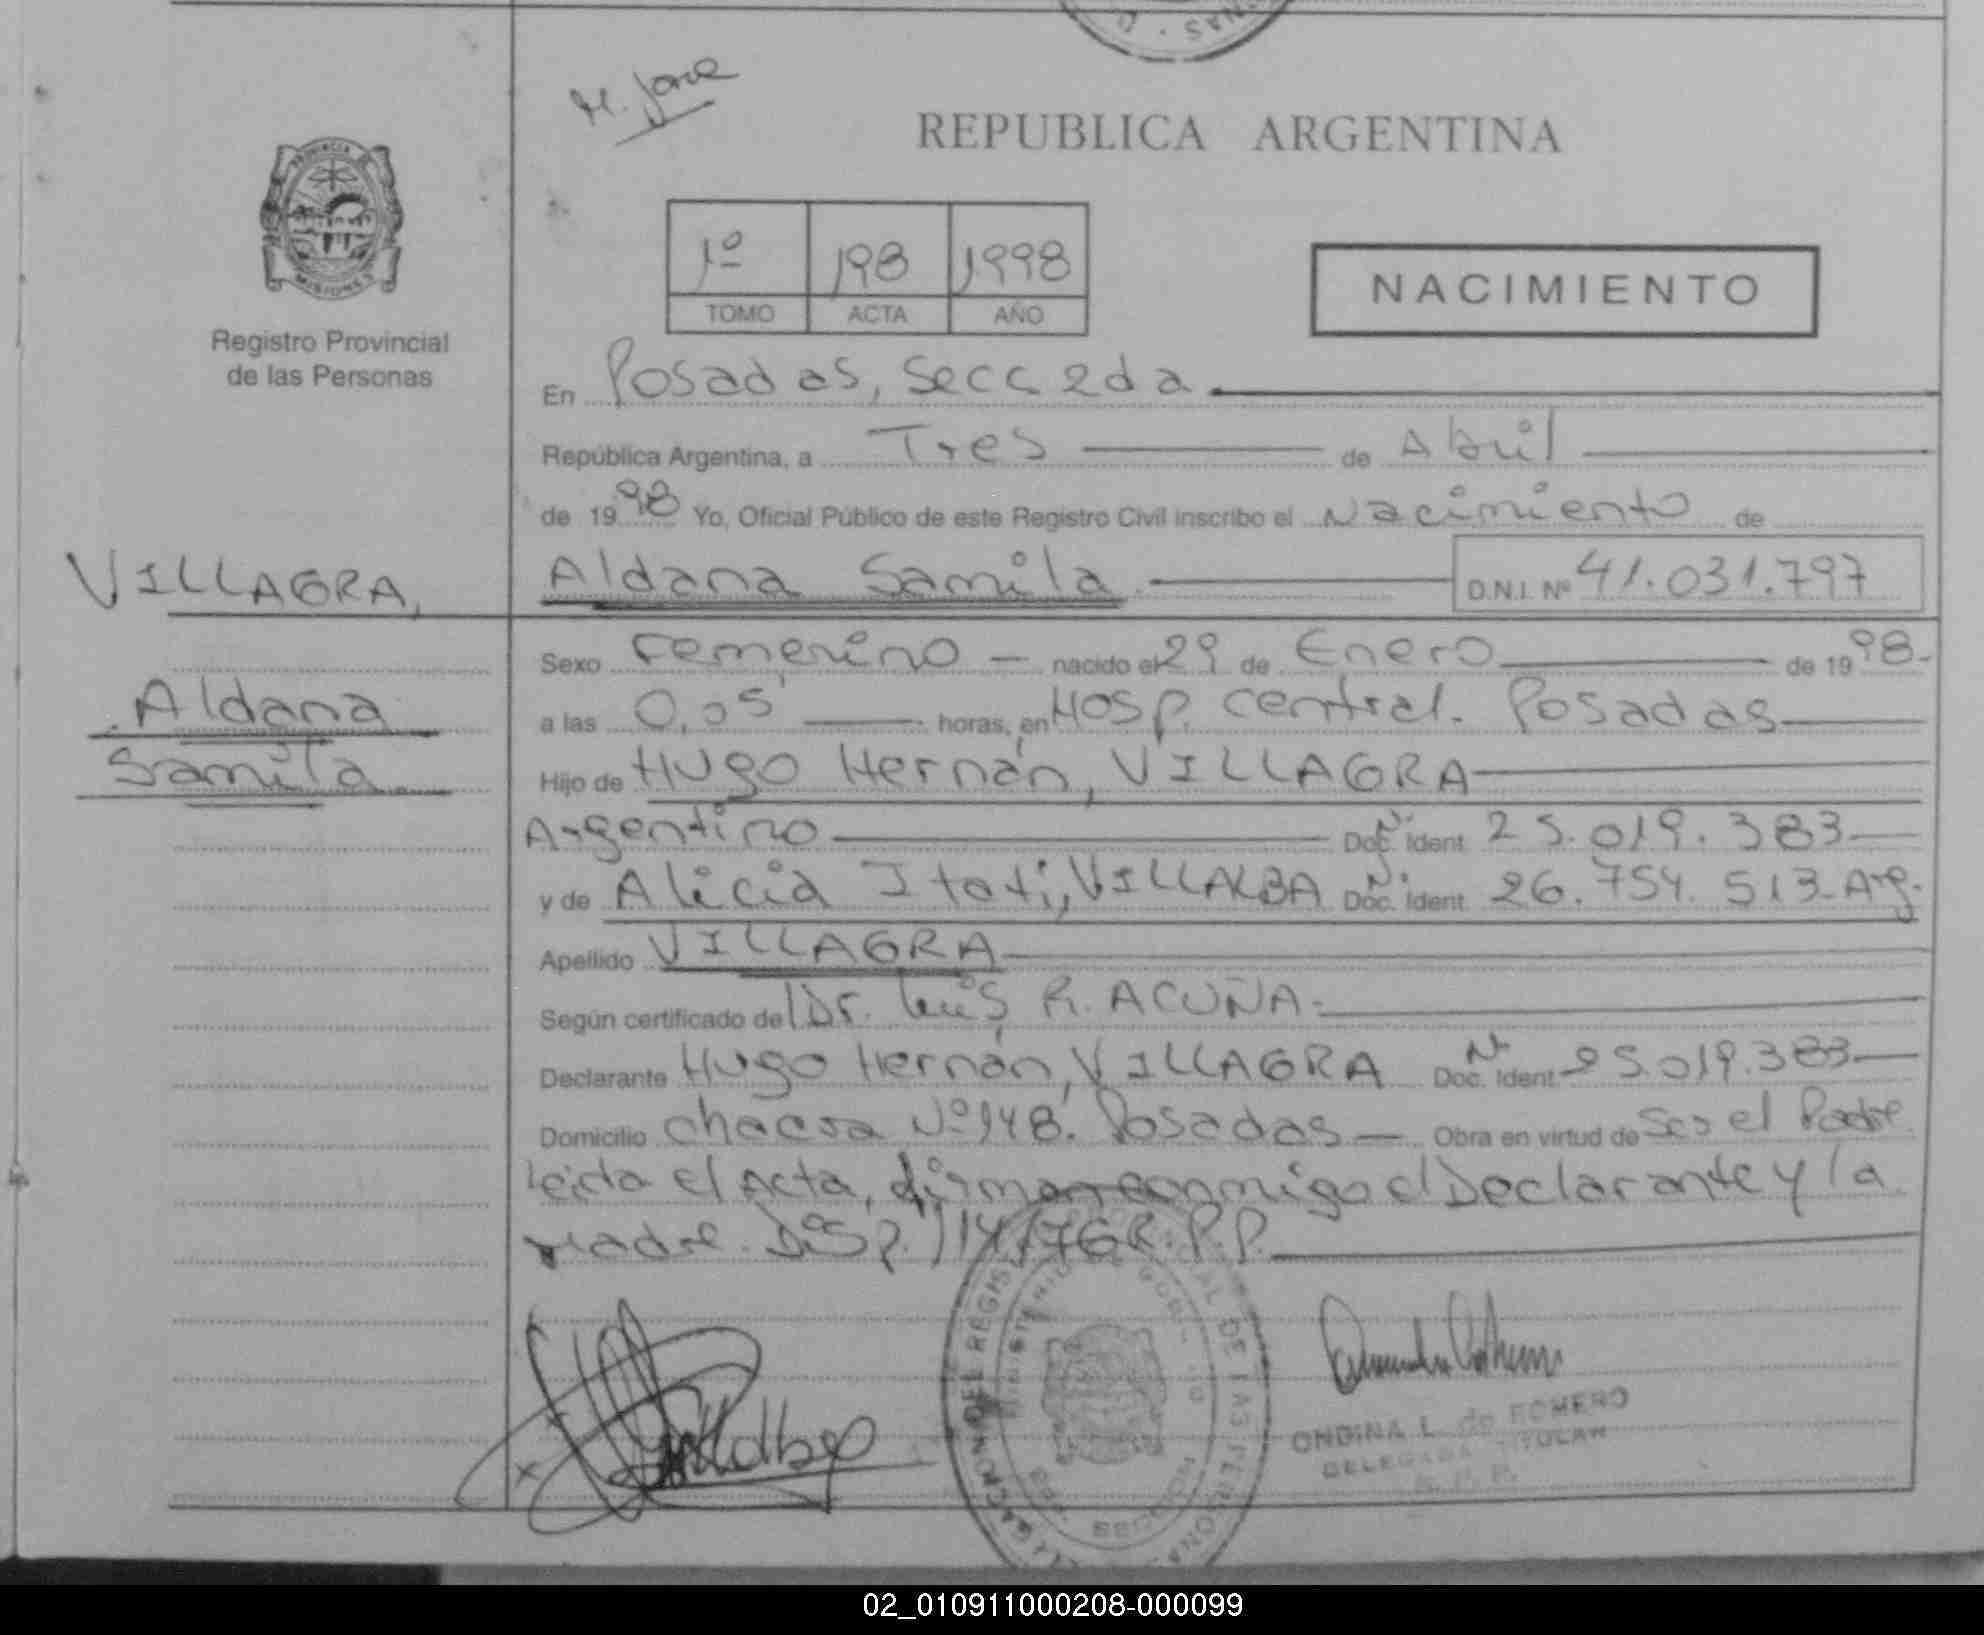 REPUBLICA ARGENTINA
PROVINCIA DE
MISIONES
Registro Provincial
de las Personas
1º 198 1998
TOMO ACTA AÑO
NACIMIENTO
En Posadas, Secc 2da
República Argentina, a Tres de Abril
de 1998 Yo, Oficial Público de este Registro Civil inscribo el Nacimiento de
VILLAGRA,
Aldana
Samila
Aldana Samila D.N.I. Nº 41.031.797
Sexo Femenino nacido el 29 de Enero de 1998.
a las 0,05' horas, en Hosp. Central. Posadas
Hijo de Hugo Hernán, VILLAGRA
Argentino Doc. Ident. 25.019.383
y de Alicia Itatí, VILLALBA Doc. Ident. 26.754.513 Arg.
Apellido VILLAGRA
Según certificado del Dr. Luis R. ACUÑA.
Declarante Hugo Hernán, VILLAGRA Doc. Ident. 25.019.383
Domicilio Chacra Nº 148. Posadas Obra en virtud de Ser el Padre
Leida el Acta, firman conmigo el Declarante y la
Madre. Disp. 114/76 R.P.P.
ONDINA L. de ROMERO
DELEGADA TITULAR
R.P.P.
02_010911000208-000099